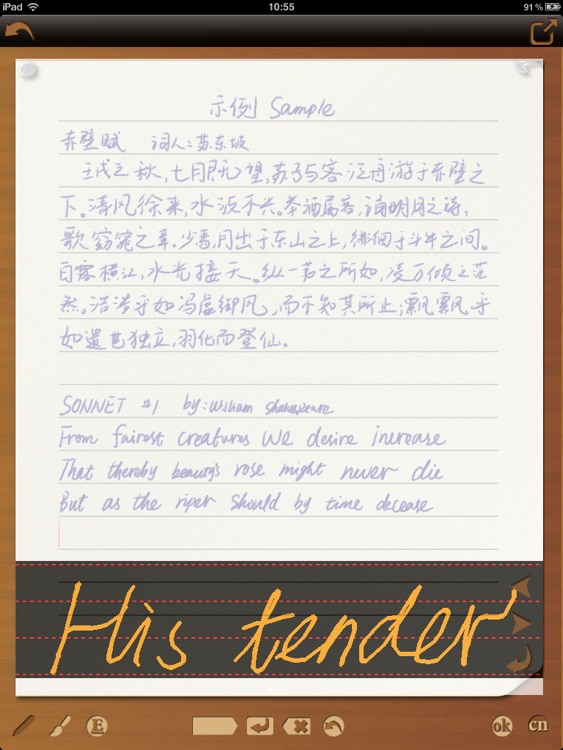 iPad 10:55 91%
示例 Sample
赤壁赋 词人:苏东坡
壬戌之秋,七月既望,苏子与客泛舟游于赤壁之
下。清风徐来,水波不兴。举酒属客,诵明月之诗,
歌窈窕之章。少焉,月出于东山之上,徘徊于斗牛之间。
白露横江,水光接天。纵一苇之所如,凌万顷之茫
然。浩浩乎如冯虚御风,而不知其所止;飘飘乎
如遗世独立,羽化而登仙。
SONNET #1 by: William Shakespeare
From fairest creatures we desire increase
That thereby beauty's rose might never die
But as the riper should by time decease
His tender
E ok cn